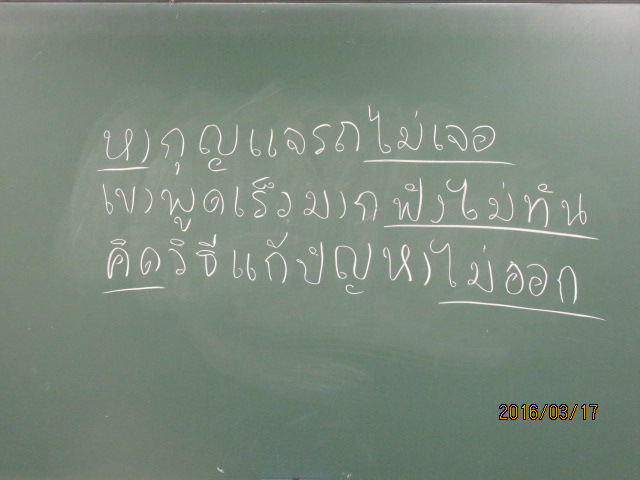 หากุญแจรถไม่เจอ
เขาพูดเร็วมากฟังไม่ทัน
คิดวิธีแก้ปัญหาไม่ออก
2016/03/17